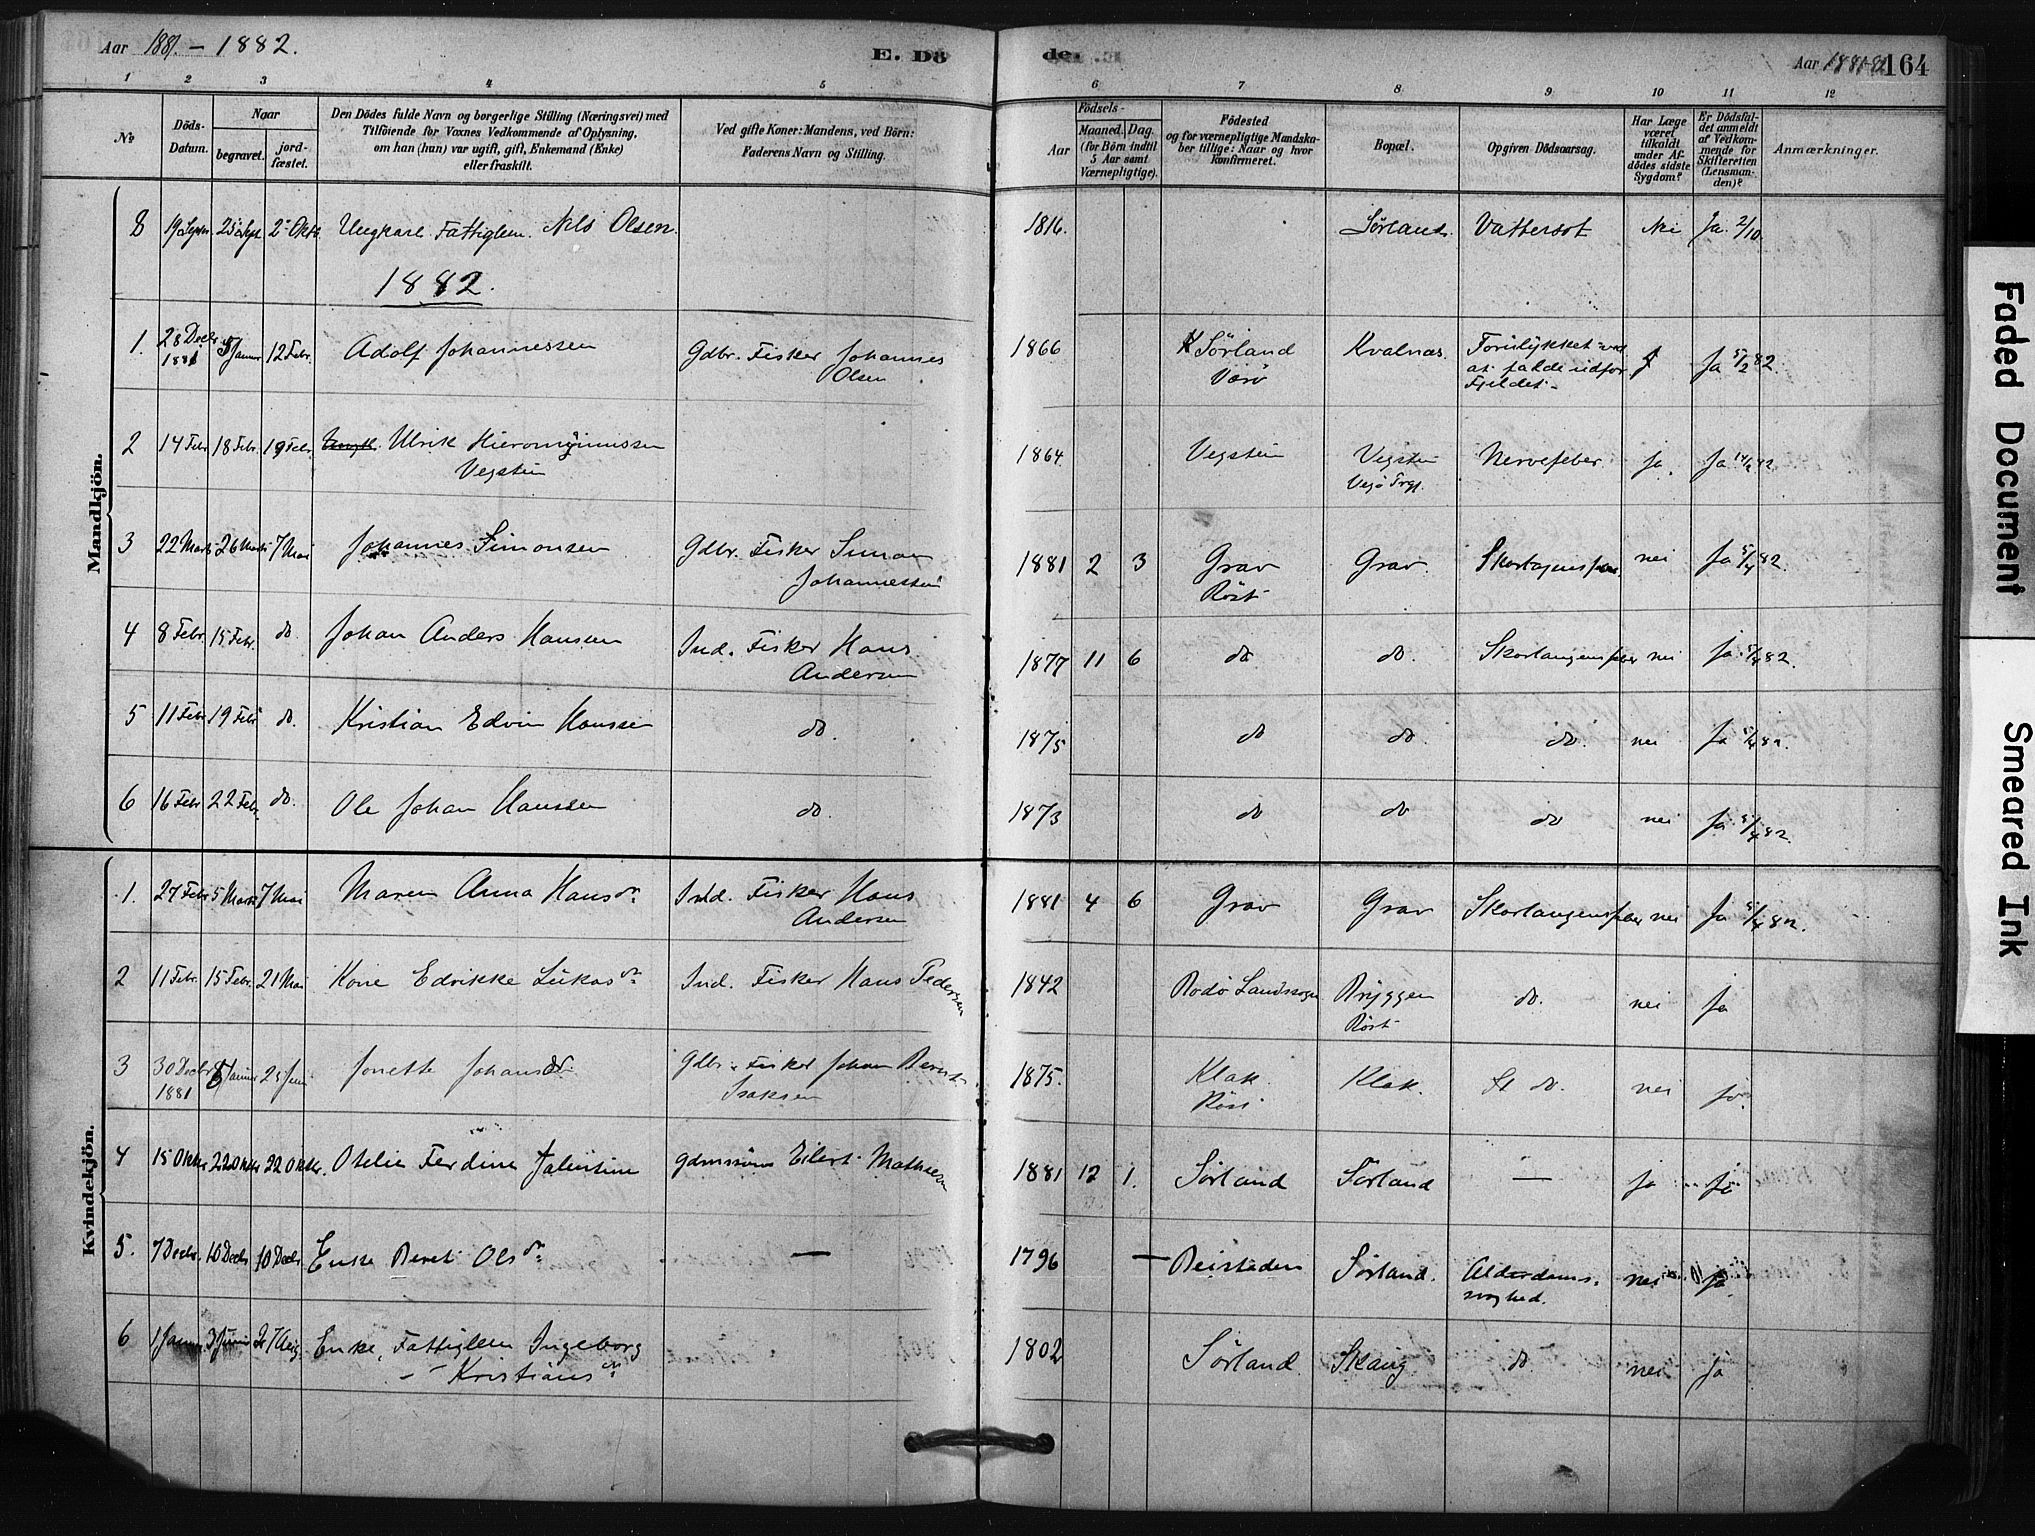 Aar 1881. - 1882.
E. Dö
de.
Aar 1881-82 164
1 2 3 4 5 6 7 8 9 10 11 12
№
Döds-Datum.
Naar
begravet.
jord-fæstet.
Den Dödes fulde Navn og borgerlige Stilling (Næringsvei) med
Tilföiende for Voxnes Vedkommende af Oplysning,
om han (hun) var ugift, gift, Enkemand (Enke)
eller fraskilt.
Ved gifte Koner: Mandens, ved Börn:
Faderens Navn og Stilling.
Födsels-
Aar
Maaned. Dag.
(for Börn indtil
5 Aar samt
Værnepligtige).
Födested
og for værnepligtige Mandska-
ber tillige: Naar og hvor
Konfirmeret.
Bopæl.
Opgiven Dödsaarsag.
Har Læge
været
tilkaldt
under Af-
dödes sidste
Sygdom?
Er Dödsfal-
det anmeldt
af Vedkom-
mende for
Skifteretten
(Lensman-
den)?
Anmærkninger.
Mandkjön.
8 19 Septr 25 Sept 2 Oktr Ungkarl Fattiglem Nils Olsen. 1816. Sørland. Vattersot Nei Ja. 2/10
1882.
1. 28 Decbr 1881 5 Januar 12 Febr. Adolf Johannessen Gdbr. Fisker Johannes Olsen 1866 Sørland Værø Kvalnæs. Forulykket ved at falde udfor Fjeldet. Ja 5/2 82
2 14 Febr 18 Febr. 19 Febr. Ulrik Hieronymussen Vegstein 1864 Vegstein Vegstein Vegø Prgj. Nervefeber ja. Ja 14/2 82
3 22 Marts 26 Marts 7 Mai Johannes Simonsen Gdbr. Fisker Simon Johannessen 1881 2 3 Grav Røst Grav. Skarlagensfeber nei Ja 5/4 82.
4 8 Febr. 15 Febr. do Johan Anders Hansen Ind. Fisker Hans Andersen 1877 11 6 do do. Skarlangensfeber nei Ja 5/4 82.
5 11 Febr 19 Febr do. Kristian Edvin Hanssen do. 1875 do do. do. nei Ja 5/4 82.
6 16 Febr 22 Febr. do. Ole Johan Hanssen do. 1873 do do do nei Ja 5/4 82
Kvindekjön.
1. 27 Febr 5 Marts 7 Mai Maren Anna Hansdr. Ind. Fisker Hans Andersen 1881 4 6 Grav Grav Skarlangensfeber nei Ja 5/4 82.
2 11 Febr. 15 Febr. 21 Mai Kone Edrikke Lukasdr. Ind. Fisker Hans Pedersen 1842 Rødø Landsogn Bryggen Røst do. nei Ja
3 30 Decbr 1881 8 Januar 25 Juni Jonette Johansdr. Gdbr. Fisker Johan Berent Isaksen 1875. Klak. Røst Klak. do. nei Ja.
4 15 Oktbr 22 Oktbr 22 Oktbr. Otelie Ferdine Jalentine Gdmssøns Eilert Mathisen 1881 12 1. Sørland Sørland — ja ja
5. 7 Decbr. 10 Decbr 10 Decbr Enke Beret Olsdr. — 1796 — Reistaden Sørland. Alderdoms-svaghed. nei ja
6 1 3 27 Aug. Enke, Fattiglem Ingeborg Kristiansdr. 1802 Sørland. Skaug do. nei Ja
Faded Document
Smeared Ink